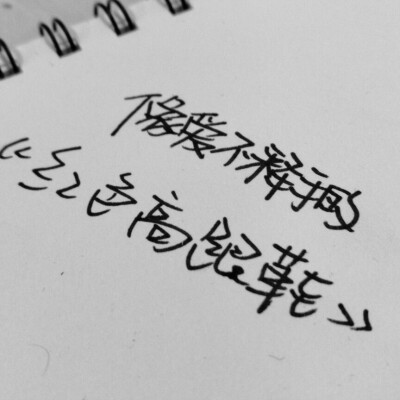 像爱不释手的
《红色高跟鞋》